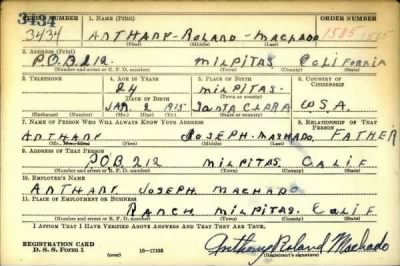 SERIAL NUMBER 1. NAME (Print) ORDER NUMBER
3434
3434 ANTHANY-ROLAND-MACHADO 1585 1585
(First) (Middle) (Last)
2. ADDRESS (Print)
P.O.B. 212. MILPITAS CALIFORNIA
(Number and street or R. F. D. number) (Town) (County) (State)
3. TELEPHONE 4. AGE IN YEARS 5. PLACE OF BIRTH 6. COUNTRY OF CITIZENSHIP
24 MILPITAS.
DATE OF BIRTH (Town or county)
JAN 2 1915 SANTA CLARA U.S.A.
(Exchange) (Number) (Mo.) (Day) (Yr.) (State or country)
7. NAME OF PERSON WHO WILL ALWAYS KNOW YOUR ADDRESS 8. RELATIONSHIP OF THAT PERSON
ANTHANY JOSEPH. MACHADO. FATHER
(Mr., Mrs., Miss) (First) (Middle) (Last)
9. ADDRESS OF THAT PERSON
P.O.B. 212 MILPITAS. CALIF
(Number and street or R. F. D. number) (Town) (County) (State)
10. EMPLOYER'S NAME
ANTHANY. JOSEPH MACHADO
11. PLACE OF EMPLOYMENT OR BUSINESS
RANCH MILPITAS. CALIF
(Number and street or R. F. D. number) (Town) (County) (State)
I AFFIRM THAT I HAVE VERIFIED ABOVE ANSWERS AND THAT THEY ARE TRUE.
REGISTRATION CARD
D. S. S. Form 1 16-17105 Anthony Roland Machado
(Registrant's signature)